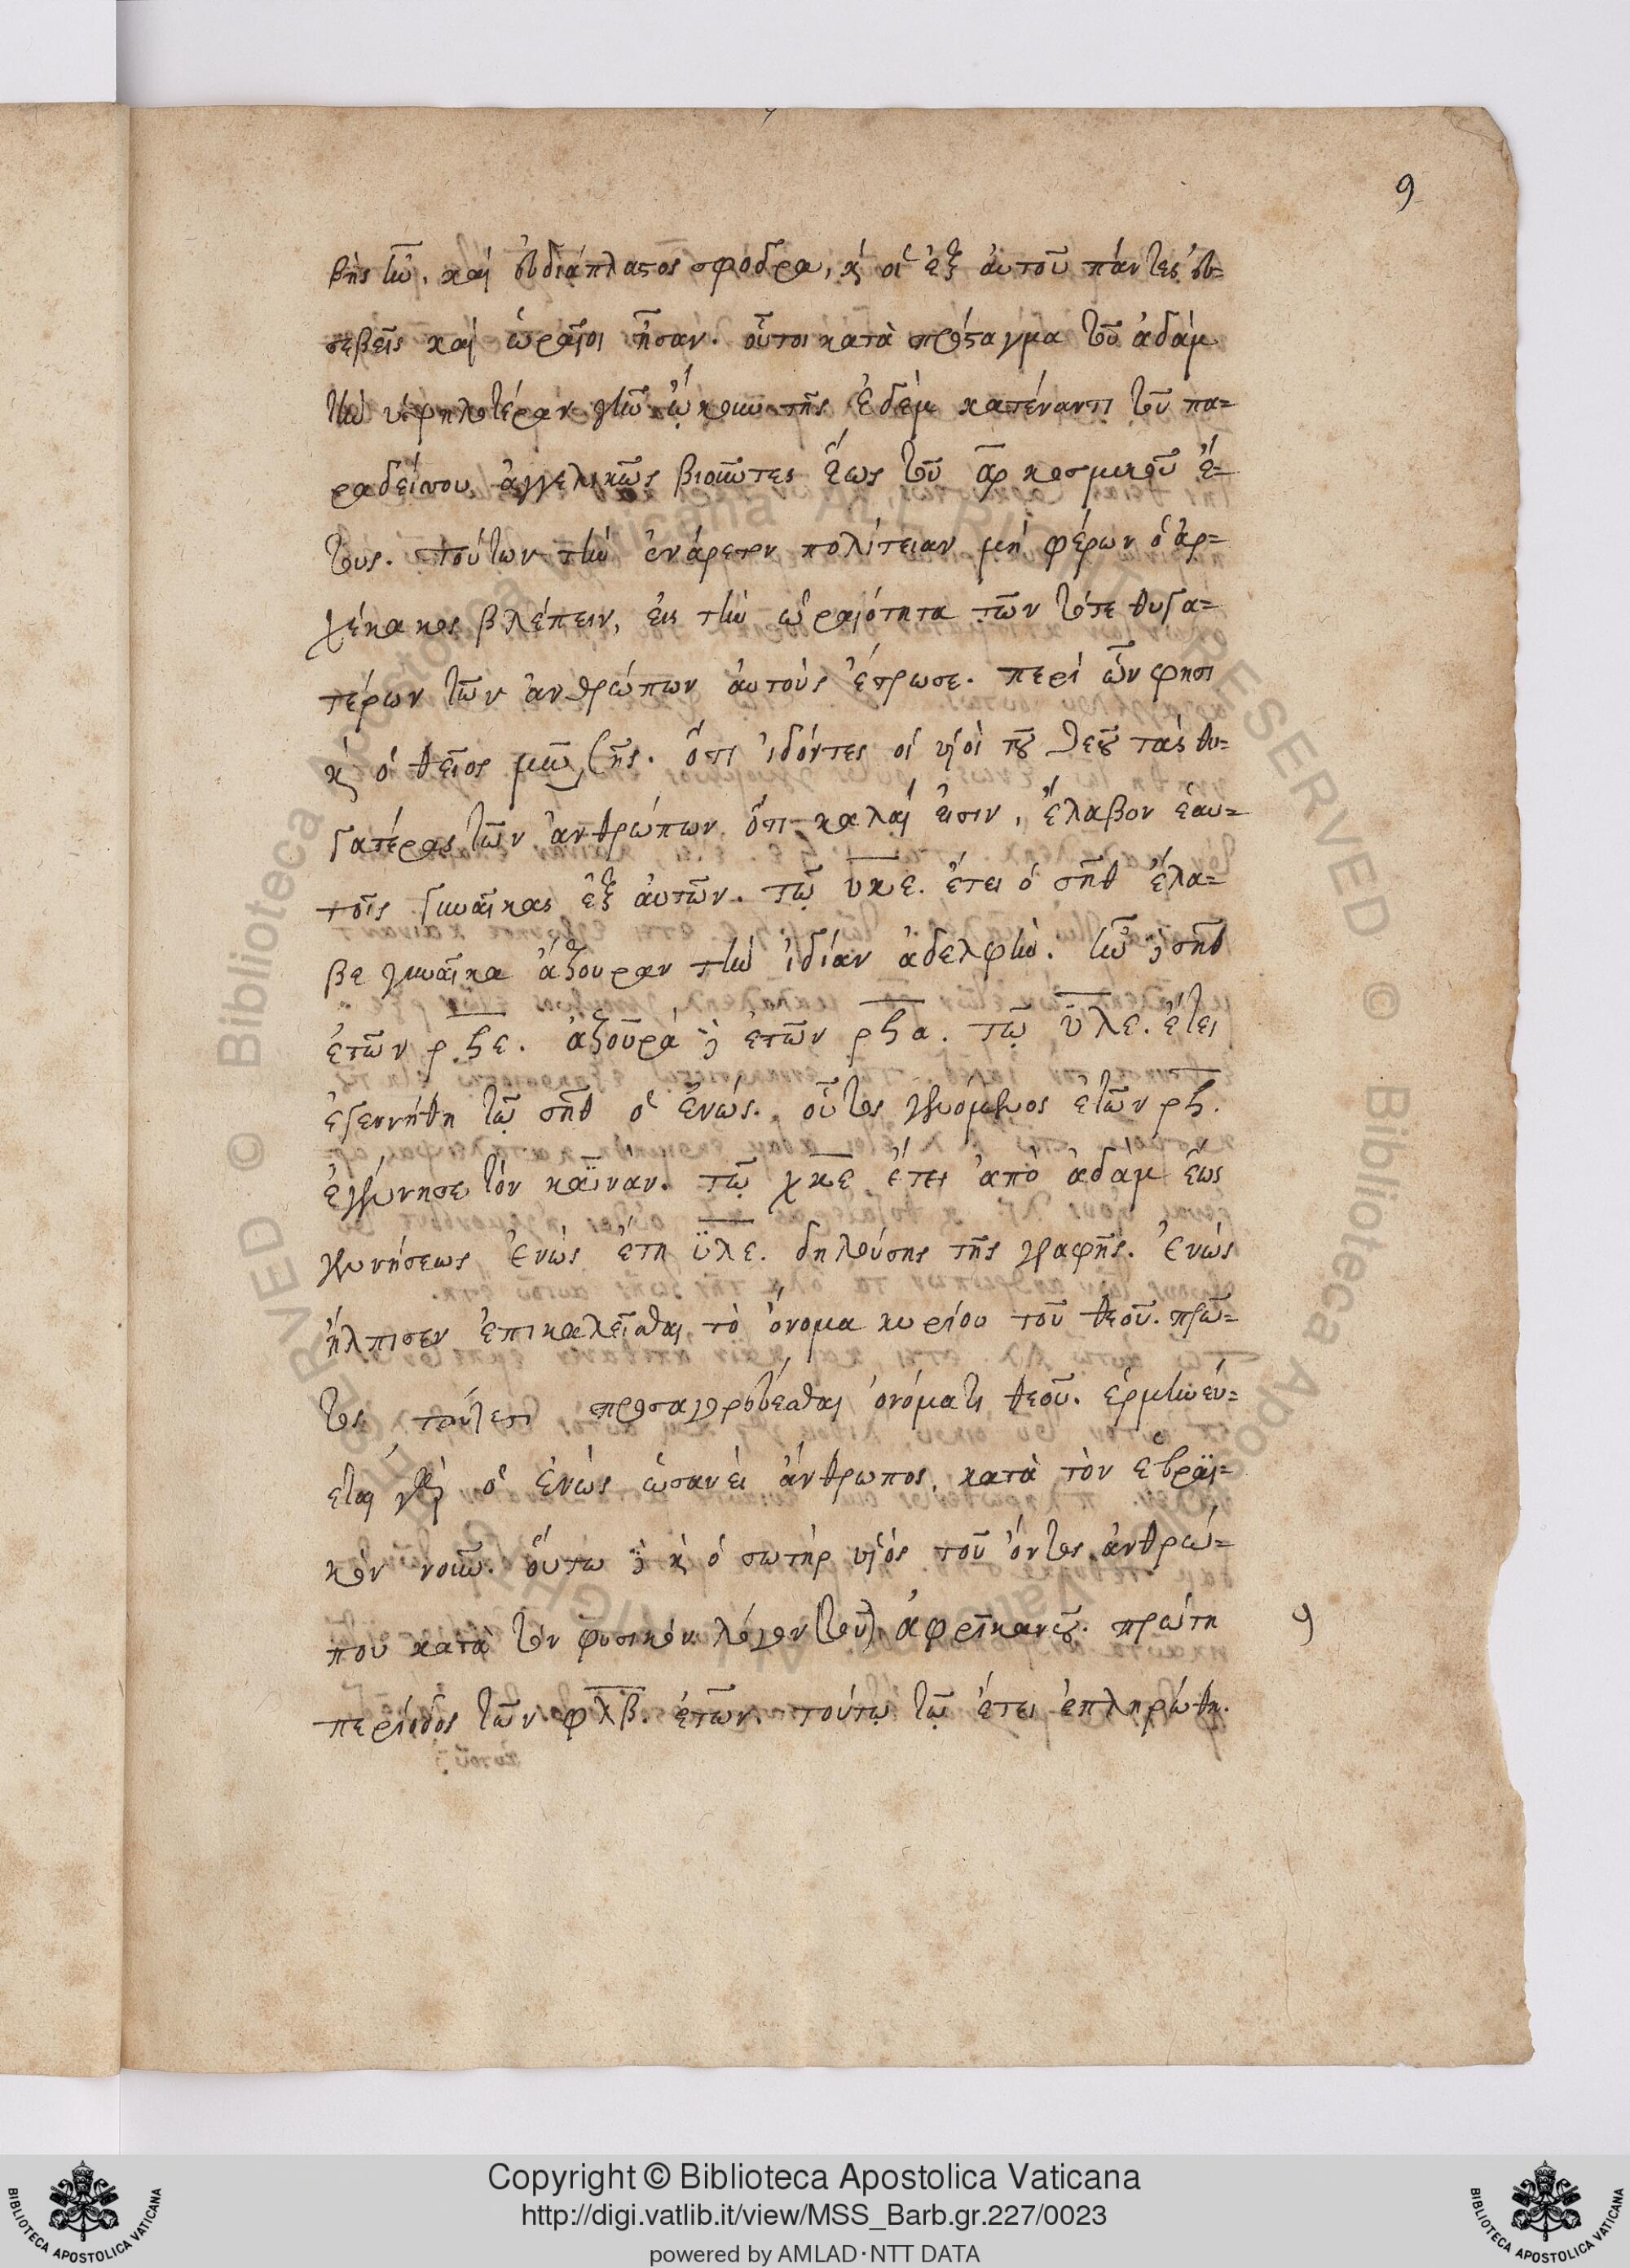 9
βὴς ἦν, καὶ εὐδιάπλαστος σφόδρα, κ̀ οἱ ἐξ αὐτοῦ πάντες εὐ=
σεβεῖς καὶ ὡραῖοι ἦσαν. οὗτοι κατὰ πρόσταγμα τοῦ ἀδὰμ
τὴν ὑψηλοτέραν γῆν ᾤκουν τῆς ἐδὲμ κατέναντι τοῦ πα=
ραδείσου ἀγγελικῶς βιοῦντες ἕως τοῦ ͵α κοσμικοῦ ἔ=
τους. τούτων τὴν ἐνάρετον πολιτείαν μὴ φέρων ὁ ἀρ=
χέκακος βλέπειν, εἰς τὴν ὡραιότητα τῶν τότε θυγα=
τέρων τῶν ἀνθρώπων αὐτοὺς ἔτρωσε. περὶ ὧν φησι
κ̀ ὁ θεῖος μωσῆς. ὅτι ἰδόντες οἱ υἱοὶ τοῦ θεοῦ τὰς θυ=
γατέρας τῶν ἀνθρώπων ὅτι καλαί εἰσιν, ἔλαβον ἑαυ=
τοῖς γυναῖκας ἐξ αὐτῶν. τῷ υκε. ἔτει ὁ σὴθ ἔλα=
βε γυναῖκα ἀζουρὰν τὴν ἰδίαν ἀδελφήν. ἦν δὲ σὴθ
ἐτῶν ρϟε. ἀζουρὰ δὲ ἐτῶν ρϟα. τῷ υλε. ἔτει
ἐγεννήθη τῷ σὴθ ὁ ἐνώς. οὗτος γενόμενος ἐτῶν ρϟ.
ἐγέννησε τὸν καϊναν. τῷ χκε ἔτει ἀπὸ ἀδὰμ ἕως
γεννήσεως ἐνὼς ἔτη υλε. δηλούσης τῆς γραφῆς. ἐνὼς
ἤλπισεν ἐπικαλεῖσθαι τὸ ὄνομα κυρίου τοῦ θεοῦ. πρῶ=
τος τουτέστι προσαγορεύεσθαι ὀνόματι θεοῦ. ἑρμηνεύ=
εται γὰρ ὁ ἐνὼς ὡσανεὶ ἄνθρωπος, κατὰ τὸν ἑβραϊ=
κὸν νοῦν. οὕτω δὲ κ̀ ὁ σωτὴρ υἱὸς τοῦ ὄντος ἀνθρώ=
που κατὰ τὸν φυσικὸν λόγον (τοῦ) ἀφρικανοῦ. πρώτη
9
περίοδος τῶν φλβ. ἐτῶν. τούτῳ τῷ ἔτει ἐπληρώθη.
© Biblioteca Apostolica Vaticana ALL RIGHTS RESERVED
Copyright © Biblioteca Apostolica Vaticana
http://digi.vatlib.it/view/MSS_Barb.gr.227/0023
powered by AMLAD·NTT DATA
BIBLIOTECA APOSTOLICA VATICANA
BIBLIOTECA APOSTOLICA VATICANA